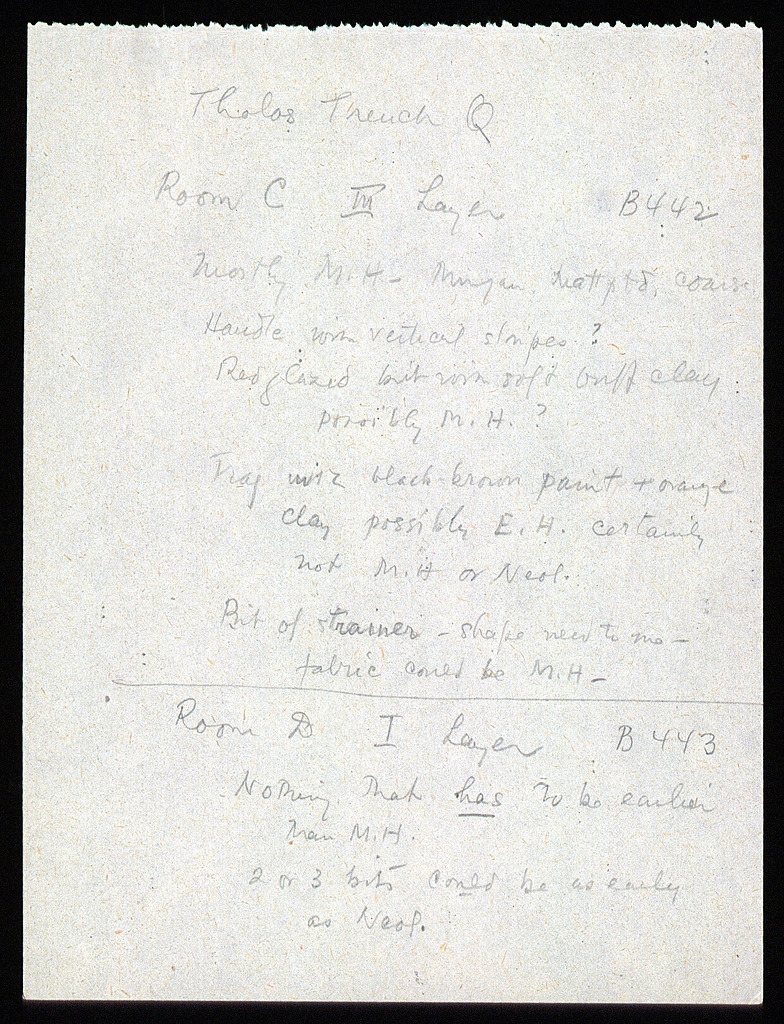 Tholos Trench Q
Room C III Layer B442
Mostly M.H. - Minyan, Mattptd, coarse
Handle with vertical stripes ?
Red glazed but with soft buff clay
possibly M.H. ?
Frag with black-brown paint + orange
clay possibly E.H. certainly
not M.H or Neol.
Bit of strainer - shape new to me -
fabric could be M.H -
Room D I Layer B 443
Nothing that has to be earlier
than M.H.
2 or 3 bits could be as early
as Neol.